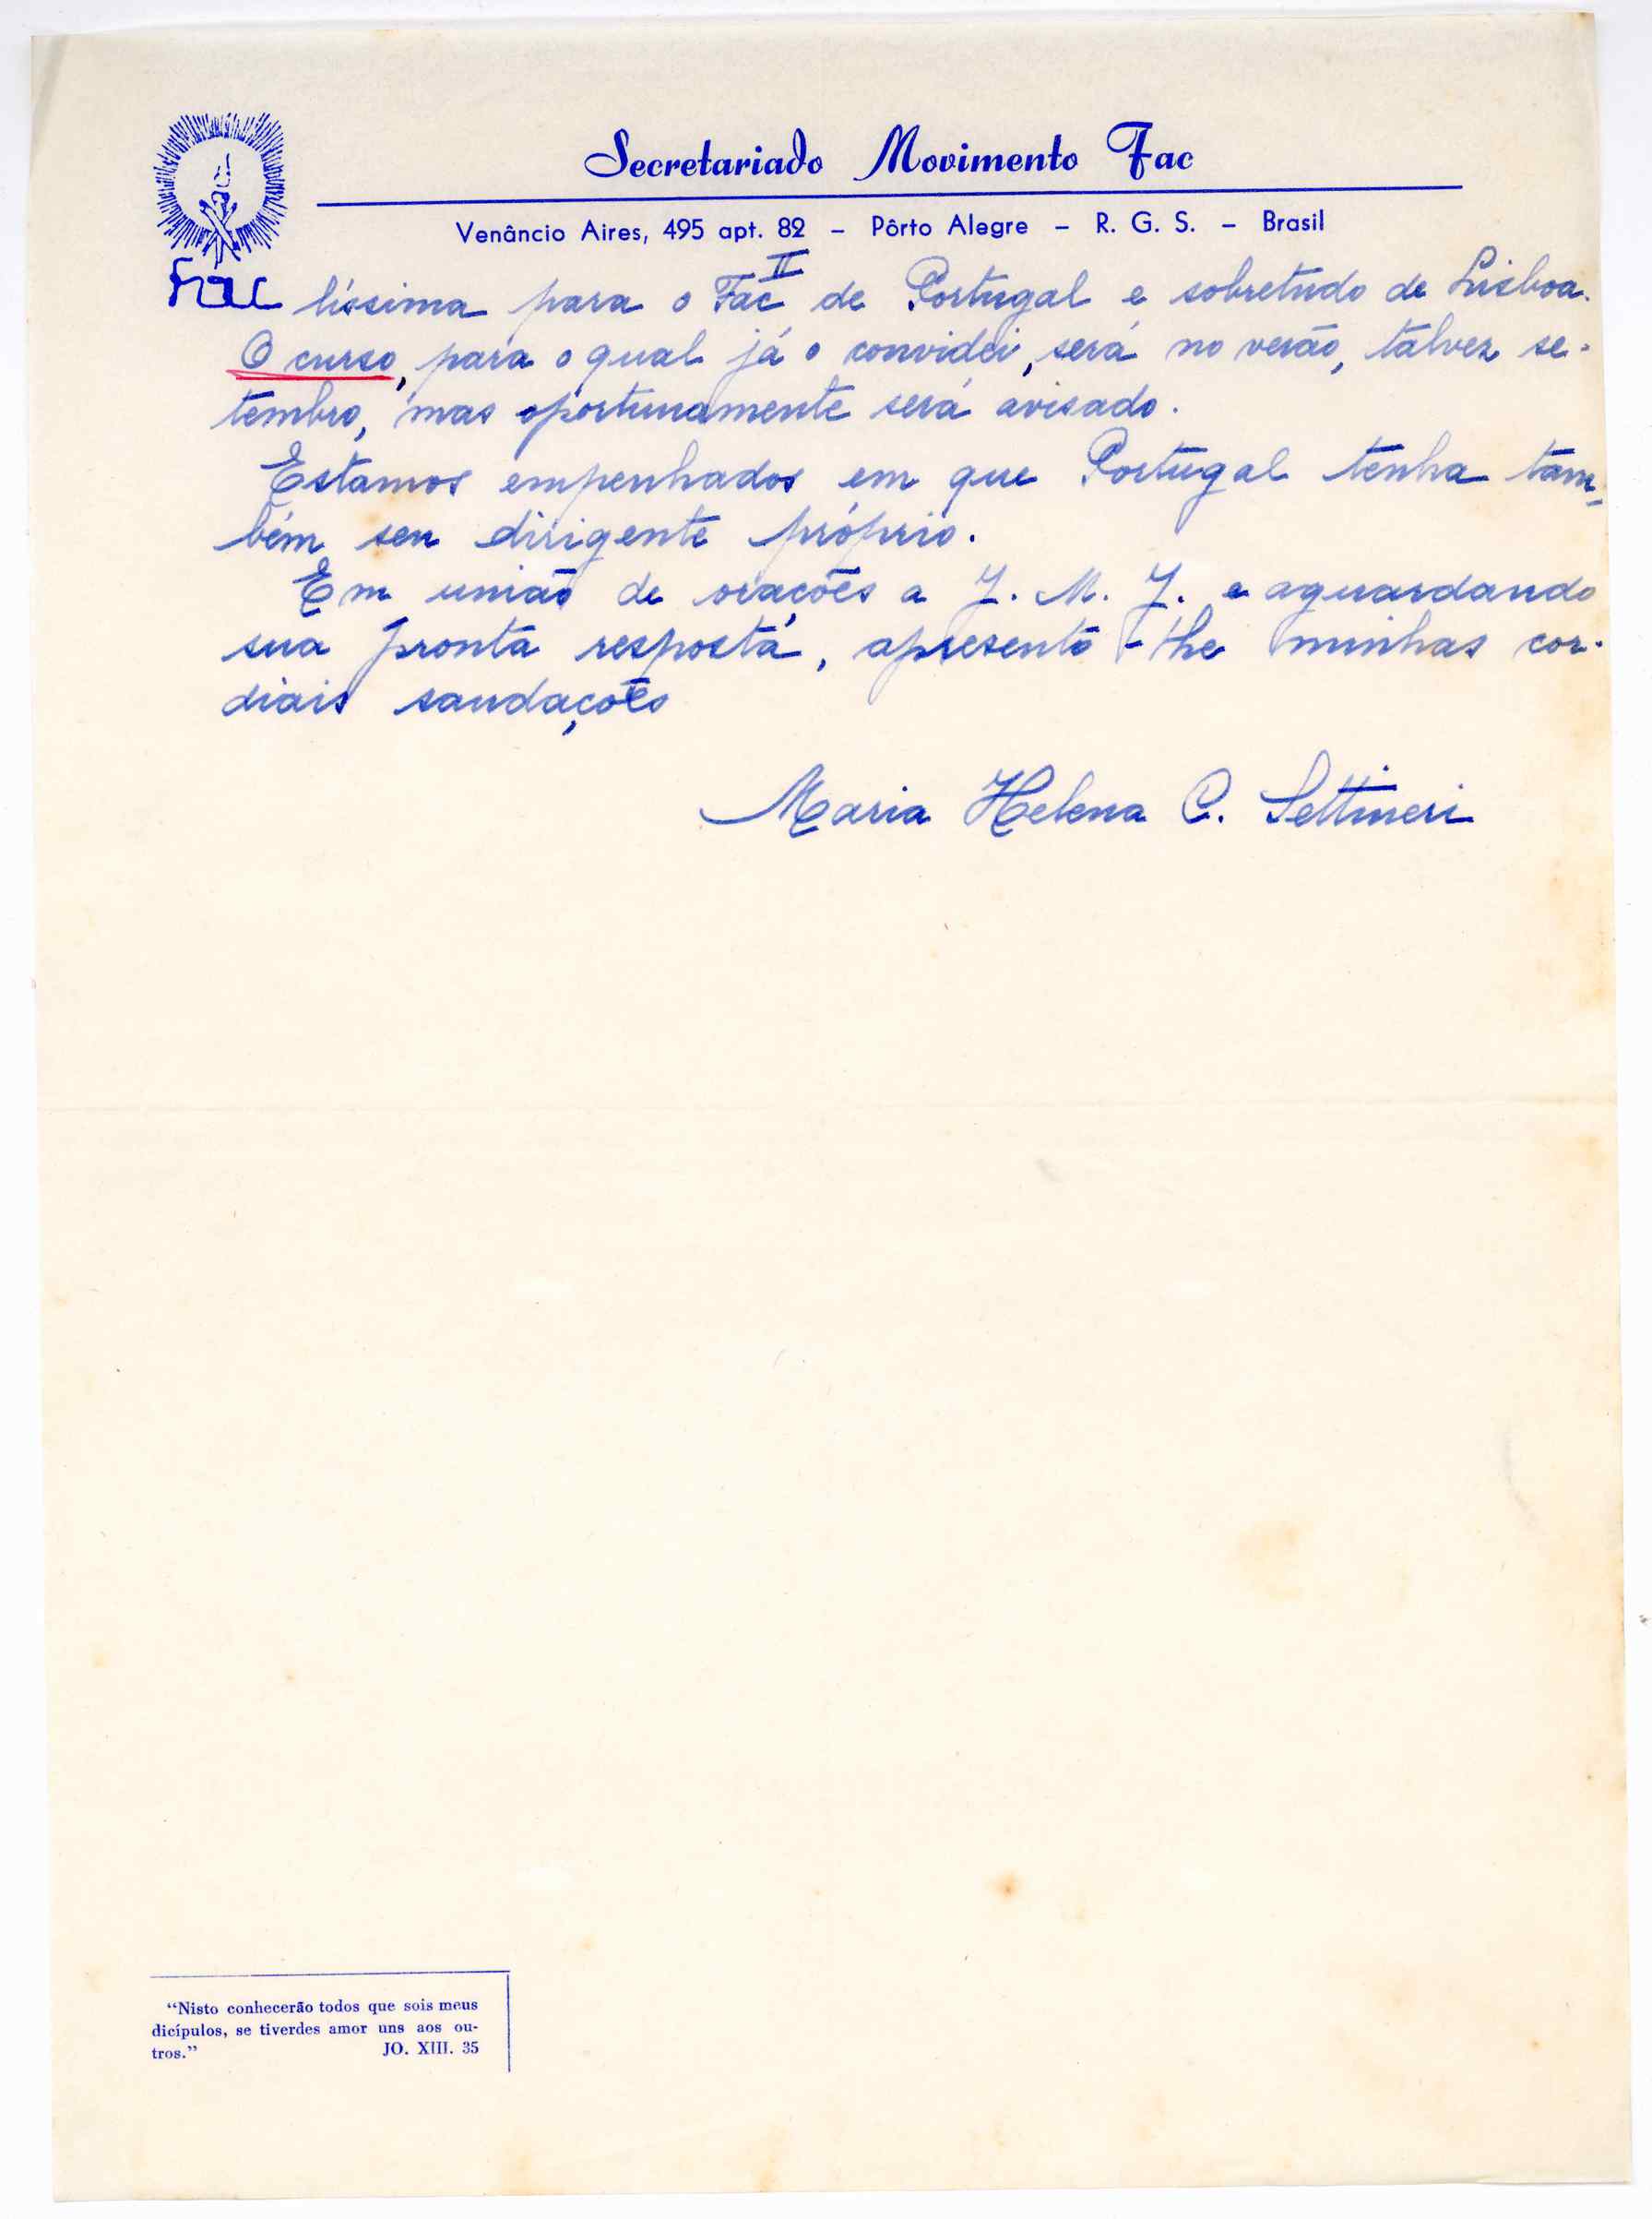 Secretariado Movimento Fac
Venâncio Aires, 495 apt. 82 – Pôrto Alegre – R. G. S. – Brasil
Fac
II
líssima para o Fac de Portugal e sobretudo de Lisboa.
O curso, para o qual já o convidei, será no verão, talvez se-
tembro, mas oportunamente será avisado.
Estamos empenhados em que Portugal tenha tam-
bém seu dirigente próprio.
Em união de orações a J. M. J. e aguardando
sua pronta resposta, apresento-lhe minhas cor-
diais saudações
Maria Helena C. Settineri
“Nisto conhecerão todos que sois meus
dicípulos, se tiverdes amor uns aos ou-
tros.” JO. XIII. 35